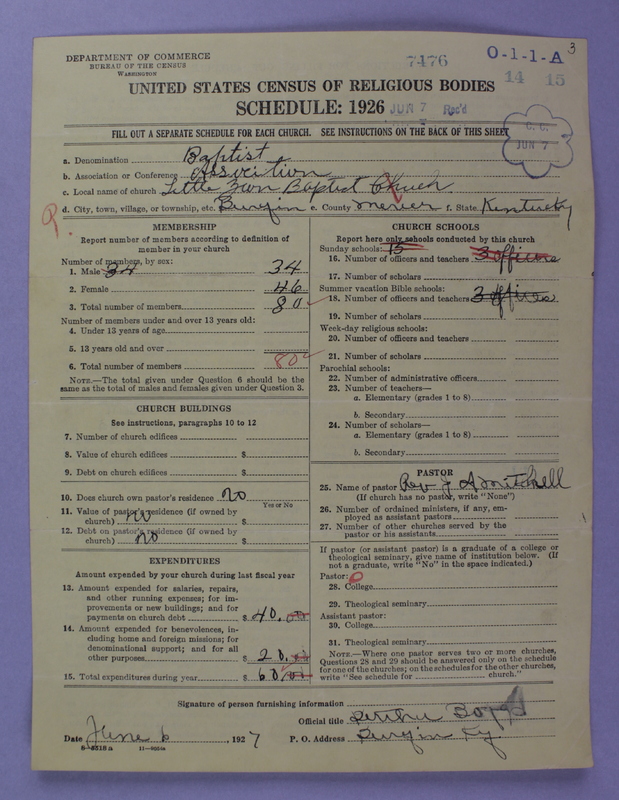 DEPARTMENT OF COMMERCE
BUREAU OF THE CENSUS
WASHINGTON
7476
O-1-1-A 3
14 15
UNITED STATES CENSUS OF RELIGIOUS BODIES
SCHEDULE: 1926
JUN 7 Rec'd
FILL OUT A SEPARATE SCHEDULE FOR EACH CHURCH. SEE INSTRUCTIONS ON THE BACK OF THIS SHEET
C. C.
JUN 7
a. Denomination Baptist
b. Association or Conference Association
c. Local name of church Little Baptist Church
d. City, town, village, or township, etc. Burgin e. County Mercer f. State Kentucky
MEMBERSHIP
Report number of members according to definition of member in your church
Number of members, by sex:
1. Male 34 34
2. Female 46
3. Total number of members 80
Number of members under and over 13 years old:
4. Under 13 years of age
5. 13 years old and over
6. Total number of members 80
NOTE.—The total given under Question 6 should be same as the total of males and females given under Question 3.
CHURCH BUILDINGS
See instructions, paragraphs 10 to 12
7. Number of church edifices
8. Value of church edifices $
9. Debt on church edifices $
10. Does church own pastor's residence no
Yes or No
11. Value of pastor's residence (if owned by church) no $
12. Debt on pastor's residence (if owned by church) no $
EXPENDITURES
Amount expended by your church during last fiscal year
13. Amount expended for salaries, repairs, and other running expenses; for improvements or new buildings; and for payments on church debt $ 40.00
14. Amount expended for benevolences, including home and foreign missions; for denominational support; and for all other purposes $ 20.00
15. Total expenditures during year $ 60.00
CHURCH SCHOOLS
Report here only schools conducted by this church
Sunday schools: 15
16. Number of officers and teachers 3 officers
17. Number of scholars
Summer vacation Bible schools:
18. Number of officers and teachers 3 offices
19. Number of scholars
Week-day religious schools:
20. Number of officers and teachers
21. Number of scholars
Parochial schools:
22. Number of administrative officers
23. Number of teachers—
a. Elementary (grades 1 to 8)
b. Secondary
24. Number of scholars—
a. Elementary (grades 1 to 8)
b. Secondary
PASTOR
25. Name of pastor Rev J A Mitchell
(If church has no pastor, write "None")
26. Number of ordained ministers, if any, employed as assistant pastors
27. Number of other churches served by the pastor or his assistants
If pastor (or assistant pastor) is a graduate of a college or theological seminary, give name of institution below. (If not a graduate, write "No" in the space indicated.)
Pastor: 0
28. College
29. Theological seminary
Assistant pastor:
30. College
31. Theological seminary
NOTE.—Where one pastor serves two or more churches, Questions 28 and 29 should be answered only on the schedule for one of the churches; on the schedules for the other churches, write "See schedule for church."
Signature of person furnishing information
Official title
Date June 6, 1927 P. O. Address Burgin Ky
8-5518a 11-9054a